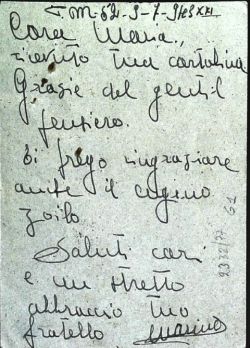 Cara Maria,
ricevuto tua cartolina
Grazie del gentil
pensiero.
Ti prego ringraziare
anche il cugino
Zoilo
Saluti cari
e un stretto
abbraccio tuo
fratello